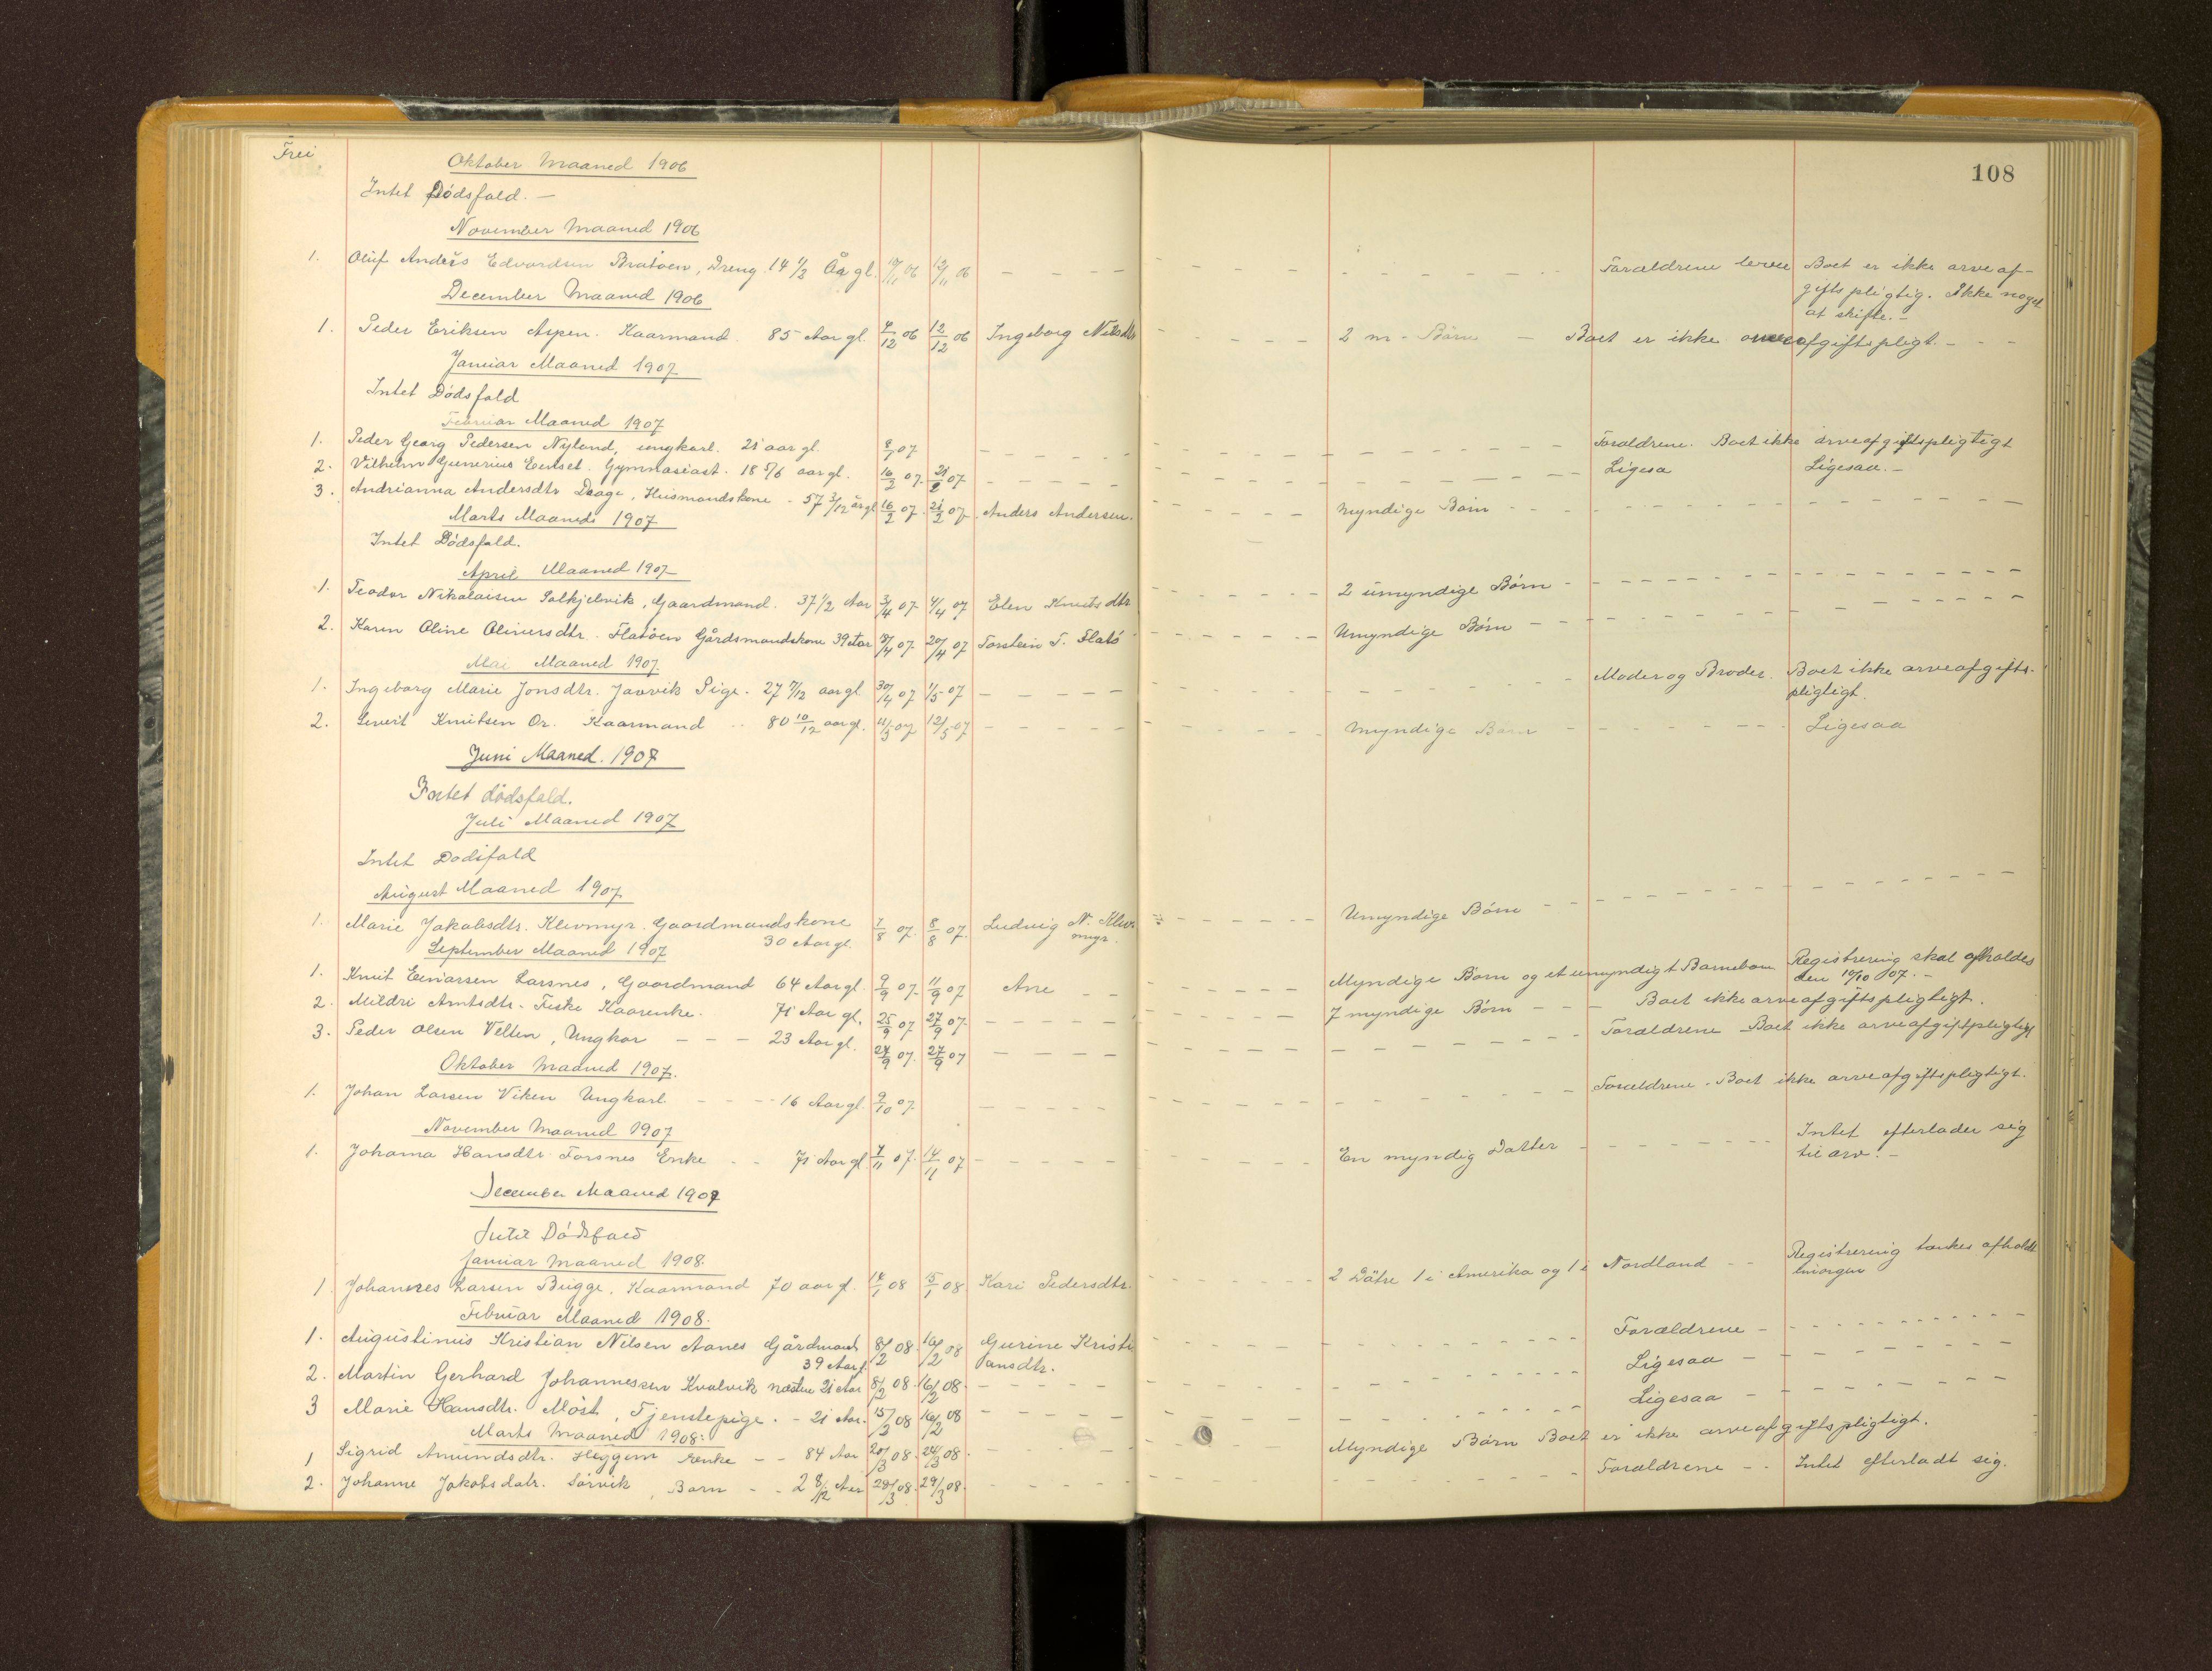 Frei
108
Oktober Maaned 1906
Intet Dödsfald. —
November Maaned 1906
1. Oluf Anders Edvardsen Bratöen, Dreng 14 1/2 Aar gl. 10/11 06 12/11 06 — — — Foraldrene lever Boet er ikke arveaf-
gifts pligtig. Ikke noget
at skifte. —
December Maaned 1906
1. Peder Eriksen Aspen. Kaarmand. 85 Aar gl. 7/12 06 12/12 06 Ingeborg Nilsdtr — — — 2 m. Börn — Boet er ikke arveafgiftspligt. — — —
Januar Maaned 1907
Intet Dödsfald
Februar Maaned 1907
1. Peder Georg Pedersen Nyland, ungkarl. 21 aar gl. 07 — — — Foraldrene. Boet ikke arveafgiftspligtigt
2. Vilhelm Gunerius Gymnasiast. 18 5/6 aar gl. 16/2 07. 21/2 07 — — — Ligesa Ligesaa. —
3. Andrianna Andersdtr Daage, Husmandskone - 57 3/12 år gl 16/2 07. 21/2 07. Anders Andersen. — — — Myndige Börn - - -
Marts Maaned 1907
Intet Dödsfald.
April Maaned 1907
1. Teodor Nikolaisen Salkjelsvik, Gaardmand. 37 1/2 Aar 3/4 07. 4/4 07 Elen Knutsdtr — — — 2 umyndige Börn — — —
2. Karen Oline Oliversdtr. Flatöen Gårdsmandskone 39 Aar 8/4 07. 20/4 07 Torstein T. Flatö — — — Umyndige Börn — — —
Mai Maaned 1907.
1. Ingeborg Marie Jonsdtr. Javvik Pige. 27 7/12 aar gl 30/4 07 1/5 07 — — — Moder og Broder. Boet ikke arveafgifts-
pligtigt.
2. Sivert Knutsen Or. Kaarmand .. 80 10/12 aar gl. 11/5 07 12/5 07 — — — Myndige Börn — — — Ligesaa
Juni Maaned. 1907
Intet dödsfald.
Juli Maaned 1907
Intet Dödsfald
August Maaned 1907
1. Marie Jakobsdtr. Klevmyr. Gaardmandskone 7/8 07. 8/8 07. Ludvig N. Klev- — — — Umyndige Börn — — —
30 Aar gl. myr.
September Maaned 1907
1. Knut Einarsen Larsnes, Gaardmand 64 Aar gl. 9/9 07. 11/9 07 Ane — — — Myndige Börn og et umyndigt Barnebarn Registrering skal afholdes
den 10/10 07. —
2. Mildri Arntsdtr. Fiske Kaarenke. 71 Aar gl. 25/9 07 27/9 07. — — — 7 myndige Börn — — Boet ikke arveafgiftspligtigt.
3. Peder Olsen Velten, Ungkar — — — 23 Aar gl. 24/9 07. 27/9 07 — — — Foraldrene Boet ikke arveafgiftpligtigt
Oktober Maaned 1907.
1. Johan Larsen Viken Ungkarl. — — — 16 Aar gl. 9/10 07. — — — Foraldrene. Boet ikke arveafgiftspligtigt.
November Maaned 1907
1. Johanna Hansdtr Forsnes Enke - - 71 Aar gl. 7/11 07. 14/11 07 — — — En myndig Datter — — — Intet efterlader sig
til arv. —
December Maaned 1907
Intet Dödsfald
Januar Maaned 1908.
1. Johannes Larsen Bugge. Kaarmand 70 aar gl. 14/1 08 15/1 08 Kari Pedersdtr. — — — 2 Dötre 1 i Amerika og 1 i Nordland — — Registrering tænkes afholdt
imorgen
Februar Maaned 1908.
1. Augustinus Kristian Nilsen Aanes Gårdmand 8/2 08. 16/2 08 Gurine Kristi — — — Forældrene — — —
39 Aar gl. ansdtr.
2. Martin Gerhard Johannessen Kvalvik næsten 21 Aar 8/2 08. 16/2 08. — — — Ligesaa — — —
3 Marie Hansdtr. Möst, Tjenstepige. - 21 Aar. 15/2 08 16/2 08 — — — Ligesaa — — —
Marts Maaned 1908.
1 Sigrid Amundsdtr. Heggem Kenke - - 84 Aar 20/3 08. 24/3 08. — — — Myndige Börn Boet er ikke arveafgiftspligtigt.
2. Johanne Jakobsdatr. Sörvik, Barn - - 2 8/12 Aar 28/3 08. 29/3 08. — — — Foraldrene - - Intet efterladt sig.